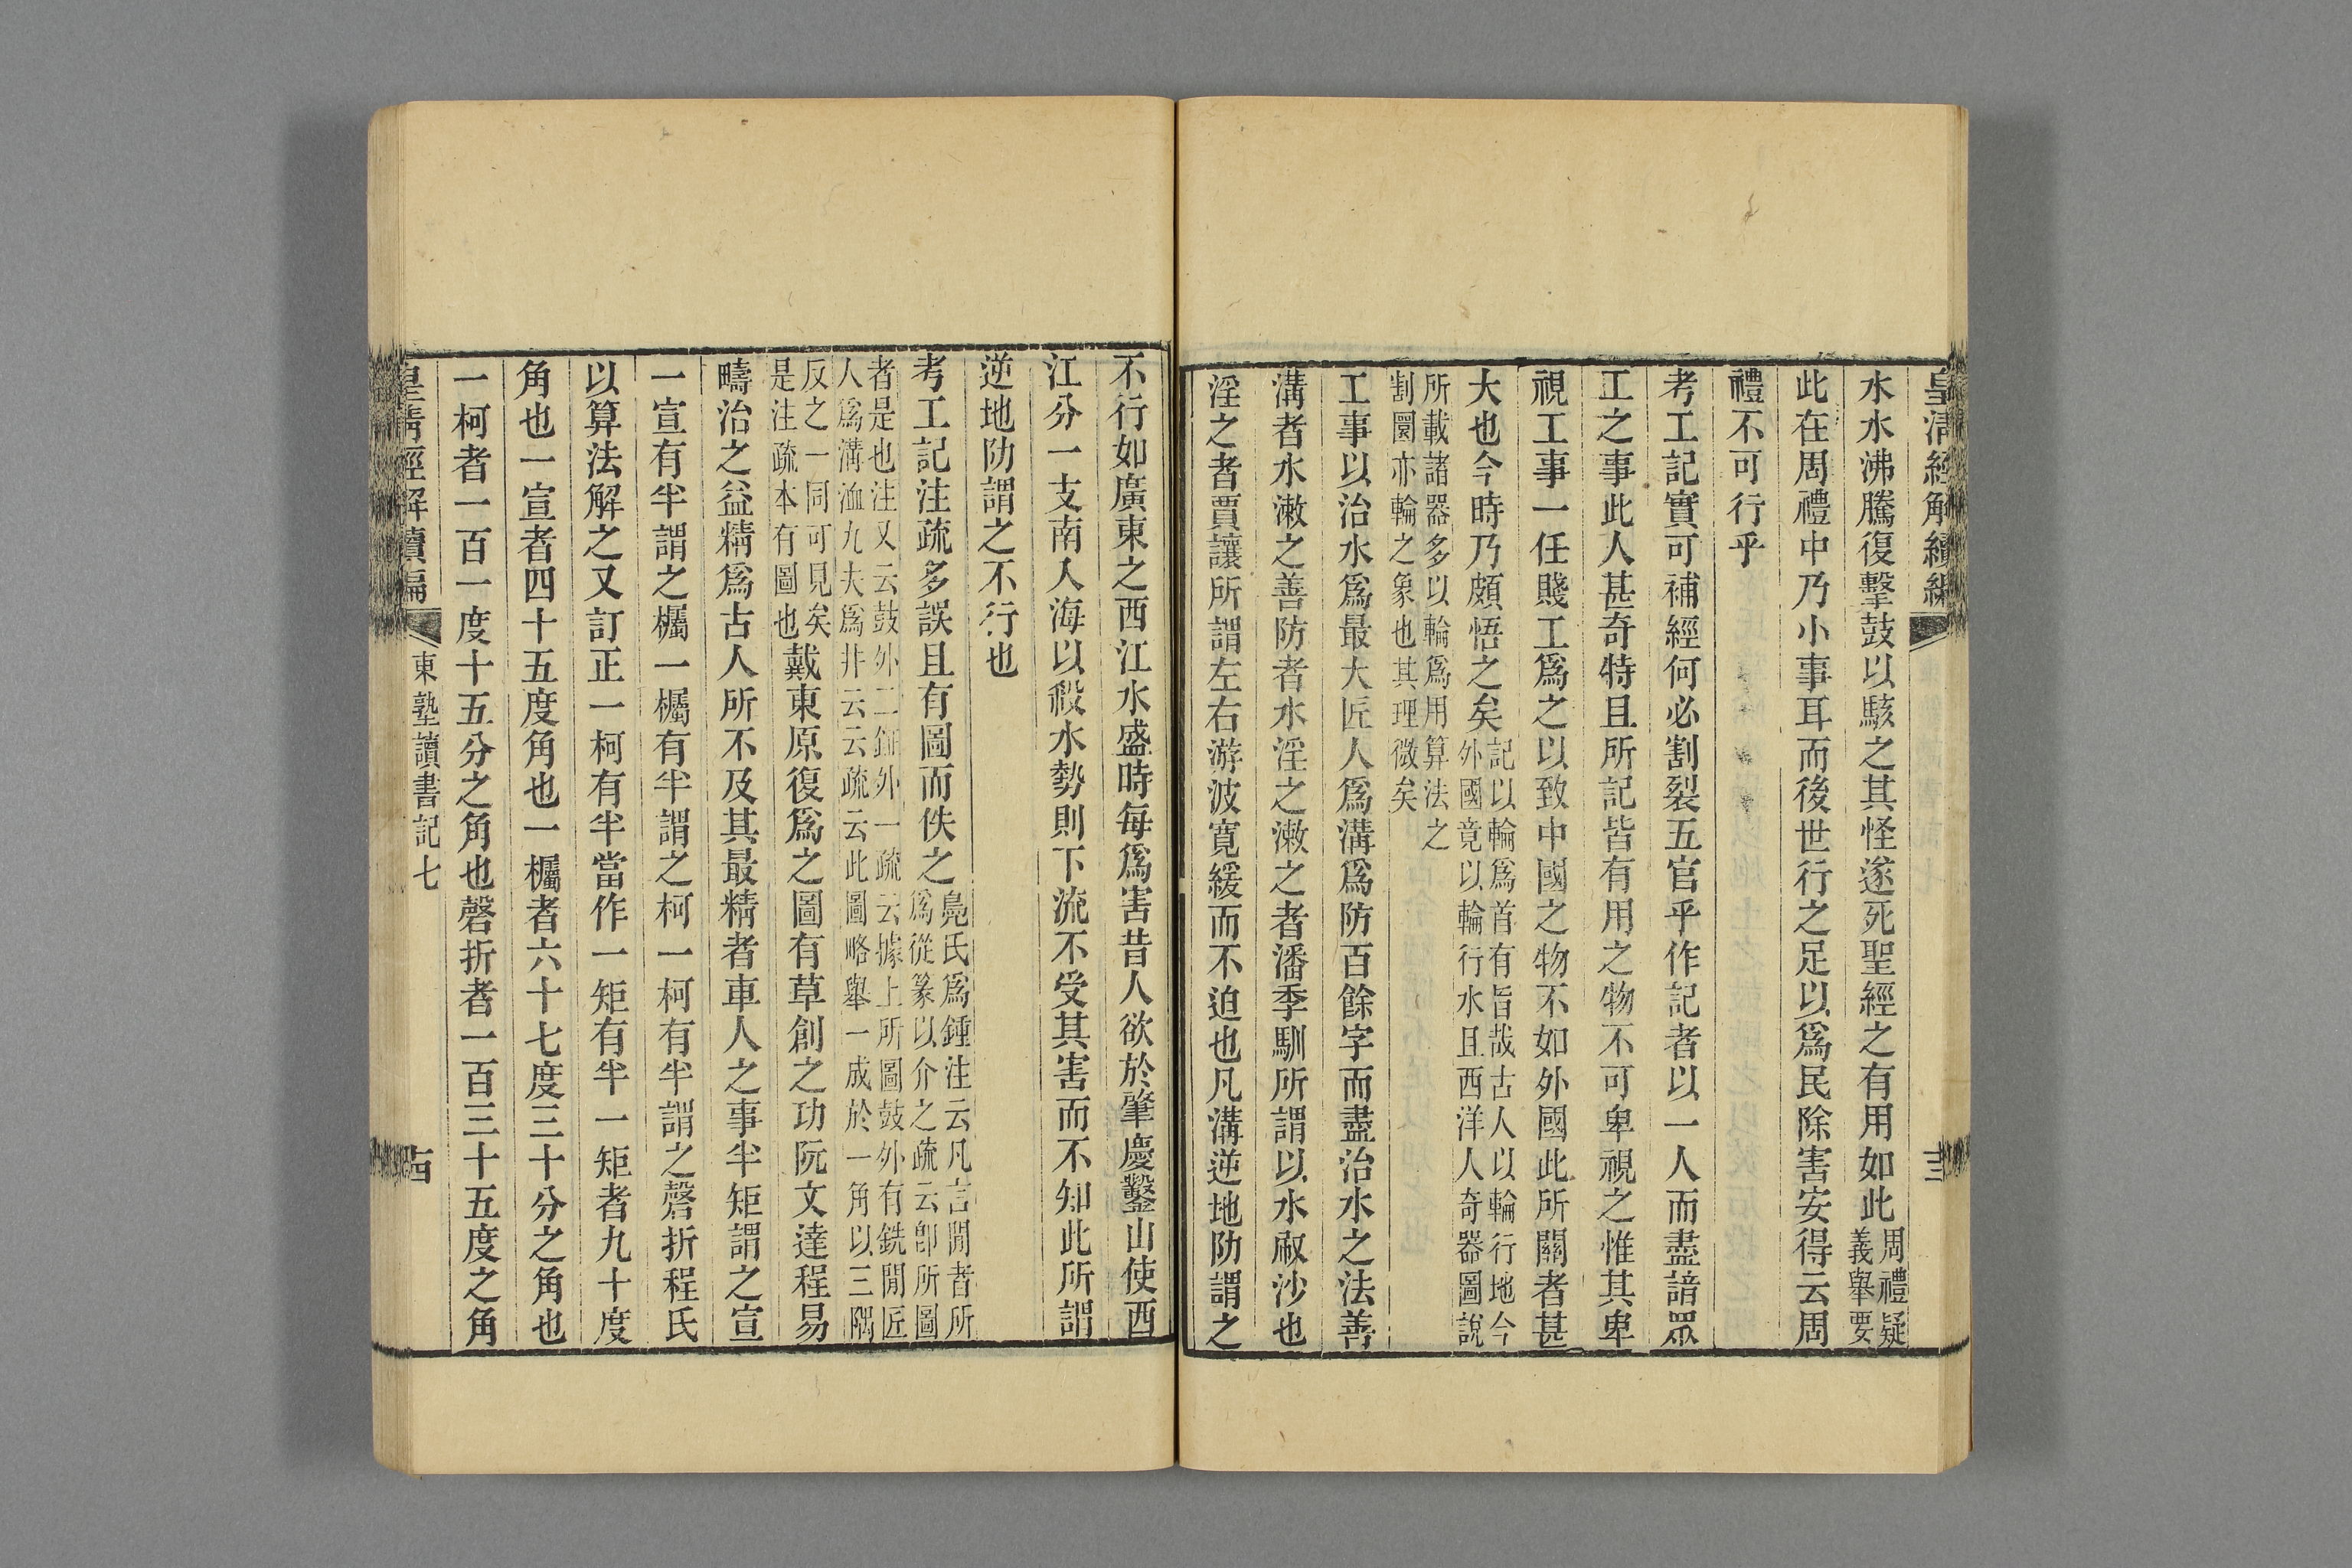 皇清經解續編
水水沸騰復擊鼓以駭之其怪遂死聖經之有用如此周禮疑義舉要
此在周禮中乃小事耳而後世行之足以爲民除害安得云周
禮不可行乎
考工記實可補經何必割裂五官乎作記者以一人而盡諳眾
工之事此人甚奇特且所記皆有用之物不可卑視之惟其卑
視工事一任賤工爲之以致中國之物不如外國此所關者甚
大也今時乃頗悟之矣記以輪爲首有旨哉古人以輪行地今外國竟以輪行水且西洋人奇器圖說
所載諸器多以輪爲用算法之割圜亦輪之象也其理微矣
工事以治水爲最大匠人爲溝爲防百餘字而盡治水之法善
溝者水漱之善防者水淫之漱之者潘季馴所謂以水㓮沙也
淫之者賈讓所謂左右游波寬緩而不迫也凡溝逆地阞謂之
不行如廣東之西江水盛時每爲害昔人欲於肇慶鑿山使西
江分一支南入海以殺水勢則下流不受其害而不知此所謂
逆地阞謂之不行也
考工記注疏多誤且有圖而佚之鳧氏爲鍾注云凡言閒者所爲從篆以介之疏云卽所圖
者是也注又云鼓外二鉦外一疏云據上所圖鼓外有銑閒匠人爲溝洫九夫爲井云云疏云此圖略舉一成於一角以三隅
反之一同可見矣是注疏本有圖也戴東原復爲之圖有草創之功阮文達程易
疇治之益精爲古人所不及其最精者車人之事半矩謂之宣
一宣有半謂之欘一欘有半謂之柯一柯有半謂之磬折程氏
以算法解之又訂正一柯有半當作一矩有半一矩者九十度
角也一宣者四十五度角也一欘者六十七度三十分之角也
一柯者一百一度十五分之角也磬折者一百三十五度之角
皇清經解續編
東塾讀書記七